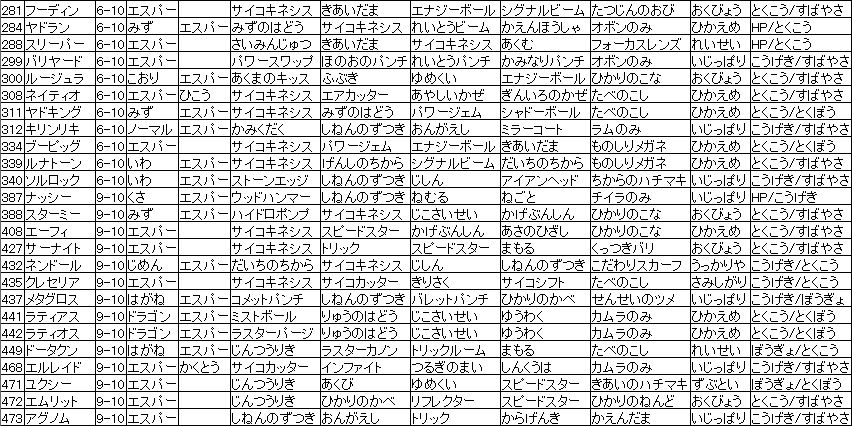 281 フーディン 6-10 エスパー サイコキネシス きあいだま エナジーボール シグナルビーム たつじんのおび おくびょう とくこう/すばやさ
284 ヤドラン 6-10 みず エスパー みずのはどう サイコキネシス れいとうビーム かえんほうしゃ オボンのみ ひかえめ HP/とくこう
288 スリーパー 6-10 エスパー さいみんじゅつ きあいだま サイコキネシス あくむ フォーカスレンズ れいせい HP/とくこう
299 バリヤード 6-10 エスパー パワースワップ ほのおのパンチ れいとうパンチ かみなりパンチ オボンのみ いじっぱり こうげき/すばやさ
300 ルージュラ 6-10 こおり エスパー あくまのキッス ふぶき ゆめくい エナジーボール ひかりのこな おくびょう とくこう/すばやさ
308 ネイティオ 6-10 エスパー ひこう サイコキネシス エアカッター あやしいかぜ ぎんいろのかぜ たべのこし ひかえめ とくこう/すばやさ
311 ヤドキング 6-10 みず エスパー サイコキネシス みずのはどう パワージェム シャドーボール たべのこし ひかえめ とくこう/とくぼう
312 キリンリキ 6-10 ノーマル エスパー かみくだく しねんのずつき おんがえし ミラーコート ラムのみ いじっぱり こうげき/すばやさ
334 ブーピッグ 6-10 エスパー サイコキネシス パワージェム エナジーボール きあいだま ものしりメガネ ひかえめ とくこう/とくぼう
339 ルナトーン 6-10 いわ エスパー サイコキネシス げんしのちから シグナルビーム だいちのちから ものしりメガネ ひかえめ とくこう/すばやさ
340 ソルロック 6-10 いわ エスパー ストーンエッジ しねんのずつき じしん アイアンヘッド ちからのハチマキ いじっぱり こうげき/すばやさ
387 ナッシー 9-10 くさ エスパー ウッドハンマー しねんのずつき ねむる ねごと チイラのみ いじっぱり HP/こうげき
388 スターミー 9-10 みず エスパー ハイドロポンプ サイコキネシス じこさいせい かげぶんしん ひかりのこな おくびょう とくこう/すばやさ
408 エーフィ 9-10 エスパー サイコキネシス スピードスター かげぶんしん あさのひざし ひかりのこな ひかえめ とくこう/すばやさ
427 サーナイト 9-10 エスパー サイコキネシス トリック スピードスター まもる くっつきバリ おくびょう とくこう/すばやさ
432 ネンドール 9-10 じめん エスパー だいちのちから サイコキネシス じしん しねんのずつき こだわりスカーフ うっかりや こうげき/とくこう
435 クレセリア 9-10 エスパー サイコキネシス サイコカッター きりさく サイコシフト たべのこし さみしがり こうげき/とくこう
437 メタグロス 9-10 はがね エスパー コメットパンチ しねんのずつき バレットパンチ ひかりのかべ せんせいのツメ いじっぱり こうげき/ぼうぎょ
441 ラティアス 9-10 ドラゴン エスパー ミストボール りゅうのはどう じこさいせい ゆうわく カムラのみ ひかえめ とくこう/とくぼう
442 ラティオス 9-10 ドラゴン エスパー ラスターパージ りゅうのはどう じこさいせい ゆうわく カムラのみ ひかえめ とくこう/とくぼう
449 ドータクン 9-10 はがね エスパー じんつうりき ラスターカノン トリックルーム まもる たべのこし れいせい ぼうぎょ/とくこう
468 エルレイド 9-10 エスパー かくとう サイコカッター インファイト つるぎのまい しんくうは カムラのみ いじっぱり こうげき/すばやさ
471 ユクシー 9-10 エスパー じんつうりき あくび ゆめくい スピードスター きあいのハチマキ ずぶとい ぼうぎょ/とくぼう
472 エムリット 9-10 エスパー じんつうりき ひかりのかべ リフレクター スピードスター ひかりのねんど おくびょう とくこう/すばやさ
473 アグノム 9-10 エスパー しねんのずつき おんがえし トリック からげんき かえんだま いじっぱり こうげき/すばやさ